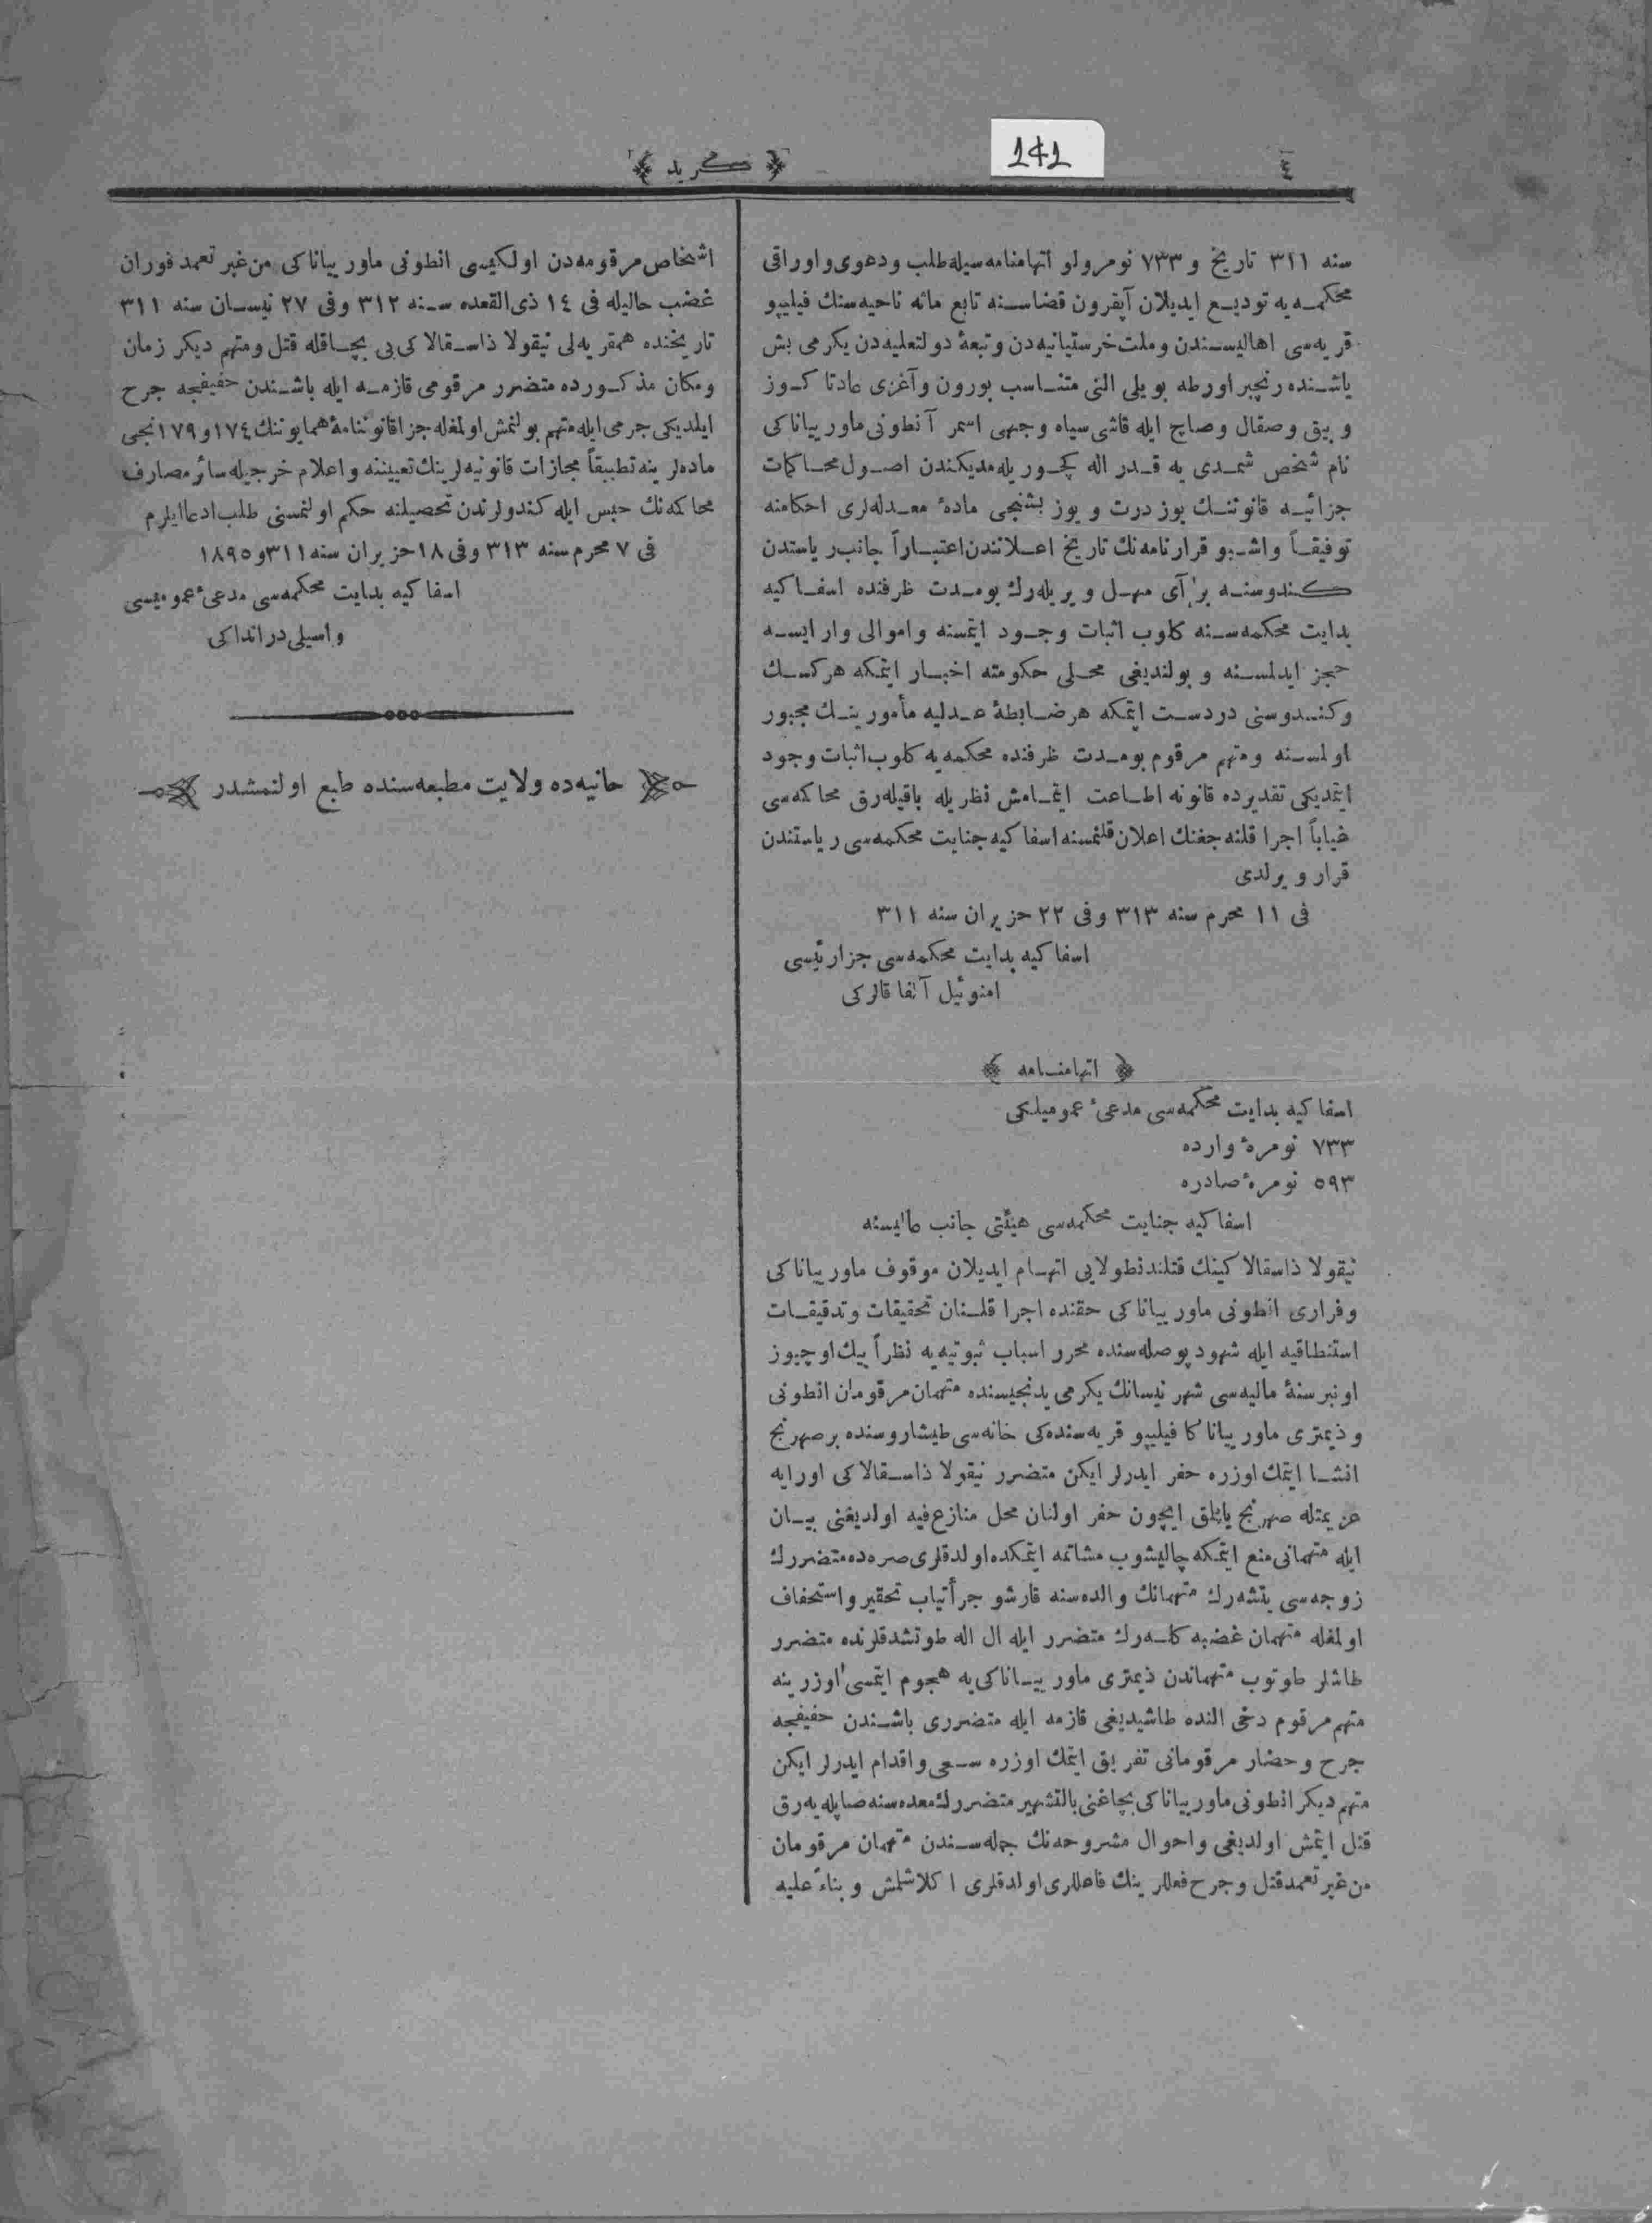 ٤
﴿ كريد ﴾
141
سنه ٣١١ تاريخ و ٧٣٣ نومرولو اتهامنامه سيله طلب ودعوى واوراقى
محكمه يه توديع ايديلان آپقرون قضاسنه تابع مائه ناحيه سنك فيليپو
قريه سى اهاليسندن وملت خرستيانيه دن وتبعۀ دولتعليه دن يكرمى بش
ياشنده رنچبر اورطه بويلى التى متناسب بورون وآغزى عادتا كوز
وبيق وصقال وصاچ ايله قاشى سياه وجهى اسمر آنطونى ماورييانا كى
نام شخص شمدى يه قدر اله كچوريله مديكندن اصول محاكمات
جزائيه قانوننك يوز درت و يوز بشنجى مادۀ معدله لرى احكامنه
توفيقاً واشبو قرارنامه نك تاريخ اعلانندن اعتباراً جانب رياستدن
كندوسنه بر آى مهل ويريله رك بومدت ظرفنده اسفاكيه
بدايت محكمه سنه كلوب اثبات وجود ايتمسنه واموالى وار ايسه
حجز ايدلمسنه و بولنديغى محلى حكومته اخبار ايتمكه هركسك
وكندوسنى دردست ايتمكه هر ضابطۀ عدليه مأمورينك مجبور
اولمسنه ومتهم مرقوم بومدت ظرفنده محكمه يه كلوب اثبات وجود
ايتمديكى تقديرده قانونه اطاعت ايتمامش نظريله باقيله رق محاكمه سى
غياباً اجرا قلنه جغنك اعلان قلنمسنه اسفاكيه جنايت محكمه سى رياستندن
قرار ويرلدى
فى ١١ محرم سنه ٣١٣ وفى ٢٢ حزيران سنه ٣١١
اسفاكيه بدايت محكمه سى جزا رئيسى
امنوئيل آنفا قالركى
﴿ اتهامنامه ﴾
اسفاكيه بدايت محكمه سى مدعئ عموميلكى
٧٣٣ نومرۀ وارده
٥٩٣ نومرۀ صادره
اسفاكيه جنايت محكمه سى هيئتى جانب عاليسنه
نيقولا ذاسقالاكينك قتلندنطولايى اتهام ايديلان موقوف ماورييانا كى
وفرارى انطونى ماورييانا كى حقنده اجرا قلنان تحقيقات وتدقيقات
استنطاقيه ايله شهود پوصله سنده محرر اسباب ثبوتيه يه نظراً بيك اوچيوز
اونبر سنۀ ماليه سى شهر نيسانك يكرمى يدنجيسنده متهمان مرقومان انطونى
وذيمترى ماورييانا كا فيليپو قريه سنده كى خانه سى طيشاروسنده بر صهرنج
انشا ايتمك اوزره حفر ايدرلر ايكن متضرر نيقولا ذاسقالاكى اورايه
عزيمتله صهرنج ياپلق ايچون حفر اولنان محل منازع فيه اولديغنى بيان
ايله متهمانى منع ايتمكه چاليشوب مشاتمه ايتمكده اولدقلرى صره ده متضررك
زوجه سى يتشه رك متهمانك والده سنه قارشو جرأتياب تحقير واستخفاف
اولمغله متهمان غضبه كله رك متضرر ايله ال اله طوتشدقلرنده متضرر
طاشلر طوتوب متهماندن ذيمترى ماورييانا كى يه هجوم ايتمسى اوزرينه
متهم مرقوم دخى النده طاشيديغى قازمه ايله متضررى باشندن خفيفجه
جرح وحضار مرقومانى تفريق ايتمك اوزره سعى واقدام ايدرلر ايكن
متهم ديكر انطونى ماورييانا كى بچاغنى بالتشهير متضررك معده سنه صاپله يه رق
قتل ايتمش اولديغى واحوال مشروحه نك جمله سندن متهمان مرقومان
من غير تعمد قتل وجرح فعللرينك فاعللرى اولدقلرى اكلاشلمش و بناءً عليه
اشخاص مرقومه دن اولكيسى انطونى ماورييانا كى من غير تعمد فوران
غضب حاليله فى ١٤ ذى القعده سنه ٣١٢ وفى ٢٧ نيسان سنه ٣١١
تاريخنده همقريه لى نيقولا ذاسقالاكى يى بچاقله قتل ومتهم ديكر زمان
ومكان مذكورده متضرر مرقومى قازمه ايله باشندن خفيفجه جرح
ايلديكى جرمى ايله متهم بولنمش اولمغله جزا قانوننامۀ همايوننك ١٧٤ و ١٧٩ نجى
ماده لرينه تطبيقاً مجازات قانونيه لرينك تعييننه واعلام خرجيله سائر مصارف
محاكمه نك حبس ايله كندولرندن تحصيلنه حكم اولنمسنى طلب ادعا ايلرم
فى ٧ محرم سنه ٣١٣ وفى ١٨ حزيران سنه ٣١١ و ١٨٩٥
اسفاكيه بدايت محكمه سى مدعئ عموميسى
واسيلى دراندا كى
حانيه ده ولايت مطبعه سنده طبع اولنمشدر